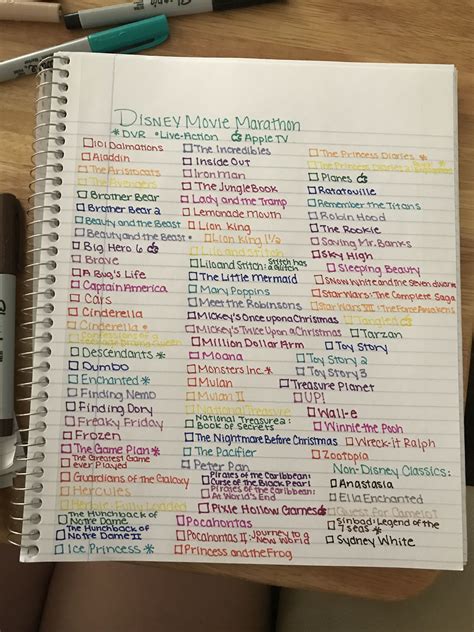 Disney Movie Marathon
*DVR •Live-Action Apple TV
101 Dalmations
Aladdin
The Aristocats
Brother Bear
Brother Bear 2
Beauty and the Beast
Beauty and the Beast •
Big Hero 6
Brave
A Bug's Life
Captain America
Cars
Cinderella
Cinderella •
Descendants *
Dumbo
Enchanted *
Finding Nemo
Finding Dory
Freaky Friday
Frozen
The Game Plan *
The Greatest Game
ever Played
Guardians of the Galaxy
Hercules
The Hunchback of
Notre Dame
The Hunchback of
Notre Dame II
Ice Princess *
The Incredibles
Inside Out
Iron Man
The Jungle Book
Lady and the Tramp
Lemonade Mouth
Lion King
Lion King 1½
Lilo and Stitch
Lilo and Stitch: Stitch has
a Glitch
The Little Mermaid
Mary Poppins
Meet the Robinsons
Mickey's Once upon a Christmas
Mickey's Twice Upon a Christmas
Million Dollar Arm
Moana
Monsters Inc. *
Mulan
Mulan II
National Treasure
National Treasure 2:
Book of Secrets
The Nightmare Before Christmas
The Pacifier
Peter Pan
Pirates of the Caribbean:
Curse of the Black Pearl
Pirates of the Caribbean:
At World's End
Pixie Hollow Games
Pocahontas
Pocahontas II: Journey to a
New World
Princess and the Frog
The Princess Diaries *
Planes
Ratatouille
Remember the Titans
Robin Hood
The Rookie
Saving Mr. Banks
Sky High
Sleeping Beauty
Snow White and the Seven dwarves
Star Wars: The Complete Saga
Star Wars VII: The Force Awakens
Tangled
Tarzan
Toy Story
Toy Story 2
Toy Story 3
Treasure Planet
UP!
Wall-e
Winnie the Pooh
Wreck-It Ralph
Zootopia
Non-Disney Classics:
Anastasia
Ella Enchanted
Quest for Camelot
Sinbad: Legend of the
7 seas *
Sydney White